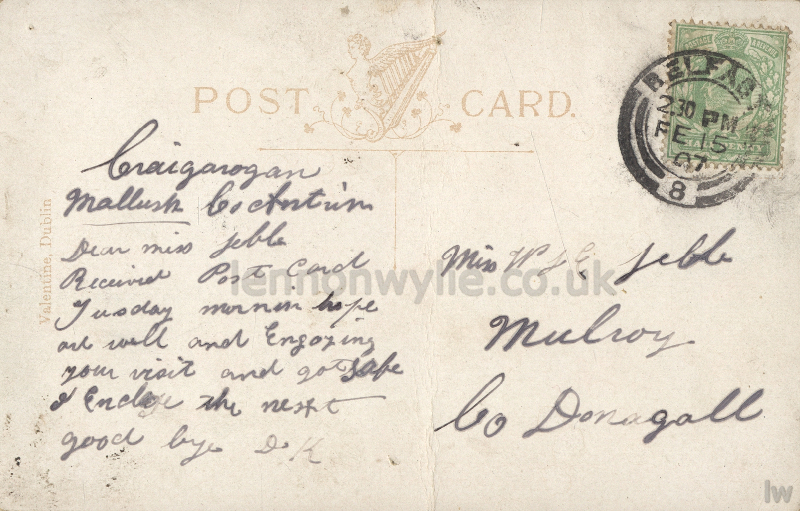 POST CARD.
BELFAST
2.30 PM
FE 15
07
8
Valentine, Dublin
Craigarogan
Mallusk Co Antrim
Dear miss
Received Post Card
Tusday mornin hope
all well and Engoying
your visit and got safe
I Enclose the next
good bye D K
Miss
Mulroy
Co Donagall
lennonwylie.co.uk
lw